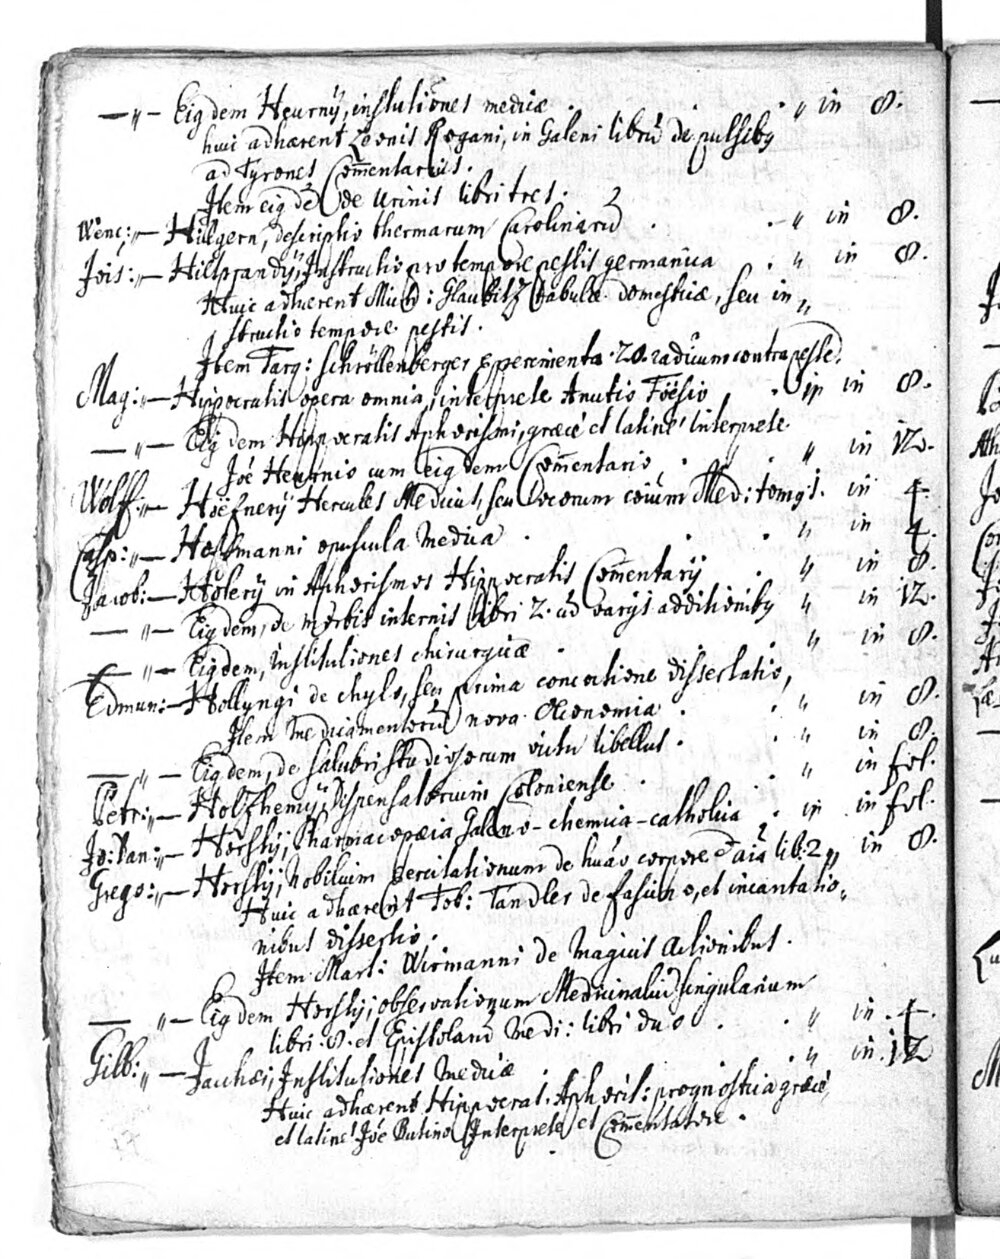 —„— Eiusdem Heurnÿ, institutiones medicæ . „ in 8.
huic adhærent Leonis Rogani, in Galeni librū de pulsibꝰ
ad Tyrones Com̄entarius.
Item eiusdē de Urinis libri tres.
Wenc:„— Hilgeri, descriptio thermarum Carolinarū . „ in 8.
Jōis:„— Hiltprandÿ, Instructio pro tempore pestis germanica . „ in 8.
Huic adhærent Mich: Glaubitz tabulæ domesticæ, seu in„
structio tempore pestis.
Item Tarq: Schnellenberger Experimenta 20. radicum contra peste.
Mag:„— Hippocratis opera omnia, interprete Anutio Föesio . in 8.
—„— Eiusdem Hippocratis Aphorismi, græcè et latinè Interprete
Joē Heurnio cum eiusdem Com̄entario . „ in 12.
Wolff:„— Hoëfnerÿ Hercules Medicus, seu locorum coium Med: tomꝰ 1. in 4.
Casp:„— Hoffmanni opuscula medica . „ in 4.
Jacob:„— Holerÿ in Aphorismos Hippocratis Com̄entarÿ . „ in 8.
—„— Eiusdem, de morbis internis libri 2. cū varÿs additionibꝰ „ in 12.
—„— Eiusdem, Institutiones chirurgicæ . „ in 8.
Edmun:„— Hollyngi de chylo, seu prima concoctione dissertatio,
Item medicamentorū nova Oeconomia . „ in 8.
—„— Eiusdem, de salubri studiosorum victu libellus . „ in 8.
Petri:„— Holzhemÿ, Dispensatorium Coloniense . „ in fol.
Jo: Dan:„— Horstÿ, Pharmacopœia Galeno-chemica-catholica . in fol.
Grego:„— Horstÿ, Nobilium exercitationum de huāo corpore et aīa lib: 2 „ in 8.
Huic adhærent Tob: Tandler de fascino, et incantatio„
nibus dissertio.
Item Mart: Wirmanni de magicis actionibus.
—„— Eiusdem Horstÿ, observationum Medicinaliū singularium
libri 8. et Epistolarū medi: libri duo . „ in 4.
Gilb:„— Jacchæi, Institutiones medicæ . „ in 12
Huic adhærent Hippocrat. Aphoris: prognostica græcè,
et latinè Joē Butino Interprete et Com̄entatore.